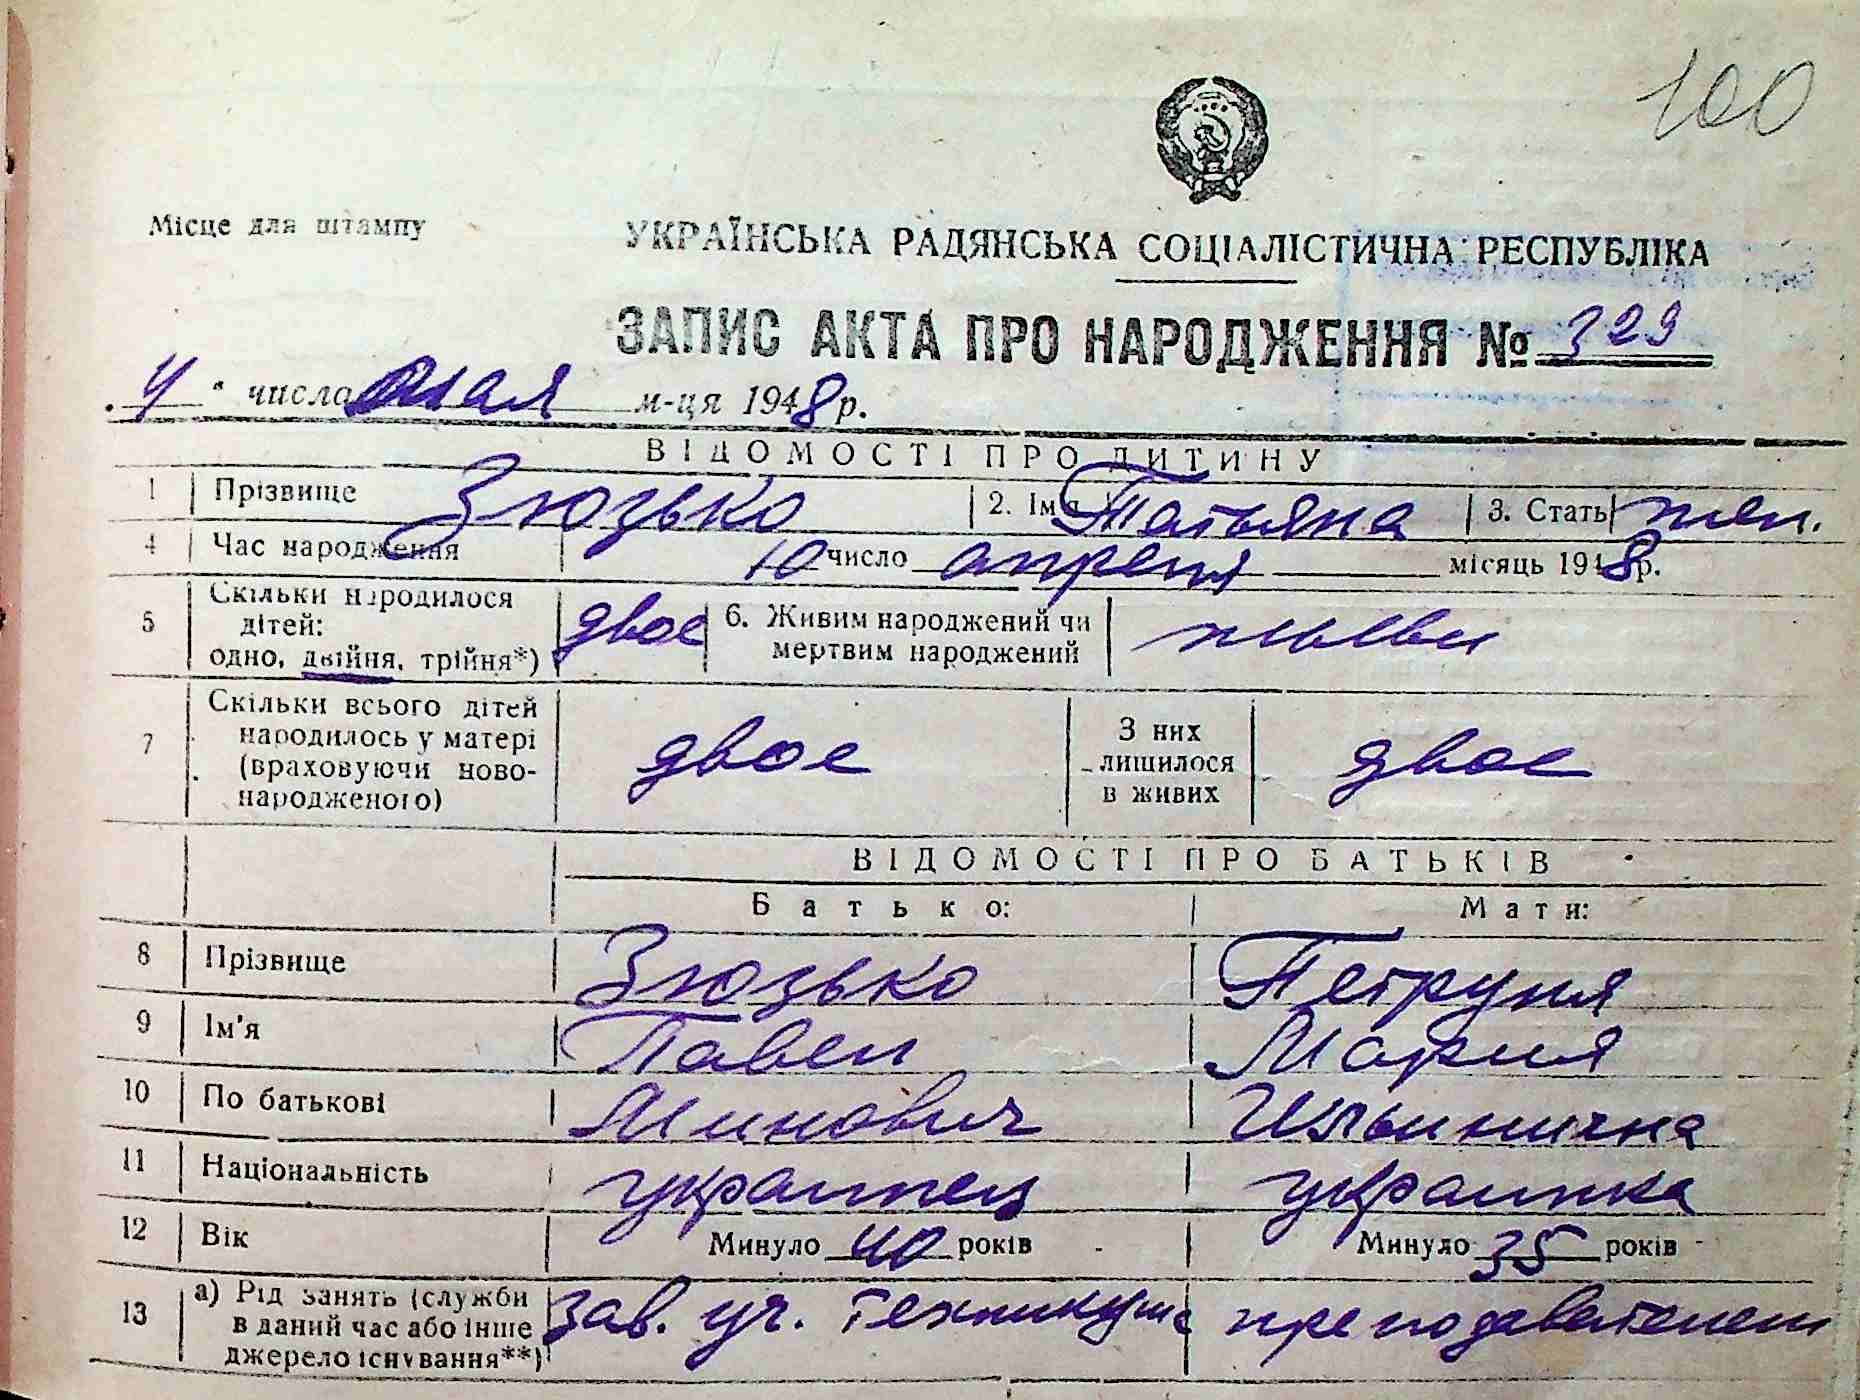 100
Місце для штампу
УКРАЇНСЬКА РАДЯНСЬКА СОЦІАЛІСТИЧНА РЕСПУБЛІКА
ЗАПИС АКТА ПРО НАРОДЖЕННЯ № 329
„4“ числа мая м-ця 1948 р.
ВІДОМОСТІ ПРО ДИТИНУ
1 Прізвище Зюзько 2. Ім'я Татьяна 3. Стать жен.
4 Час народження 10 число апреля місяць 1948 р.
5 Скільки народилося
дітей:
одно, двійня, трійня*) двое 6. Живим народжений чи
мертвим народжений живы
7 Скільки всього дітей
народилось у матері
(враховуючи ново-
народженого) двое З них
лишилося
в живих двое
ВІДОМОСТІ ПРО БАТЬКІВ
Батько: Мати:
8 Прізвище Зюзько Петруня
9 Ім'я Павел Мария
10 По батькові Минович Ильинична
11 Національність украинец украинка
12 Вік Минуло 40 років Минуло 35 років
13 а) Рід занять (служби
в даний час або інше
джерело існування**) зав. уч. техникума преподаватель